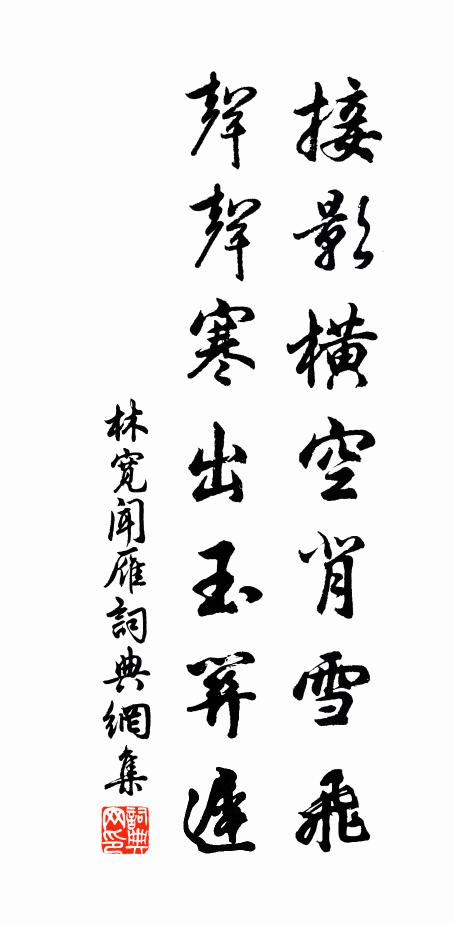 接影橫空背雪飛
聲聲寒出玉關遲
林寬聞雁詞典網集
詞典网印